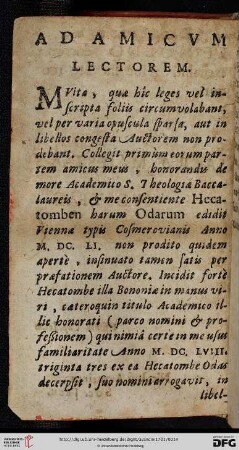 AD AMICVM
LECTOREM.
MVlta, quæ hic leges vel in-
scripta foliis circumvolabant,
vel per varia opuscula sparsa, aut in
libellos congesta Auctorem non pro-
debant. Collegit primùm eorum par-
tem amicus meus, honorandis de
more Academico S. Theologiæ Bacca-
laureis, & me consentiente Heca-
tomben harum Odarum edidit
Viennæ typis Cosmerovianis Anno
M. DC. LI. non prodito quidem
apertè, insinuato tamen satis per
præfationem Auctore. Incidit fortè
Hecatombe illa Bononiæ in manus vi-
ri, cæteroquin titulo Academico il-
lic honorati (parco nomini & pro-
fessioni) qui nimiâ certè in me usus
familiaritate Anno M. DC. LVIII.
triginta tres ex ea Hecatombe Odas
decerpsit, suo nomini arrogavit, in
libel-